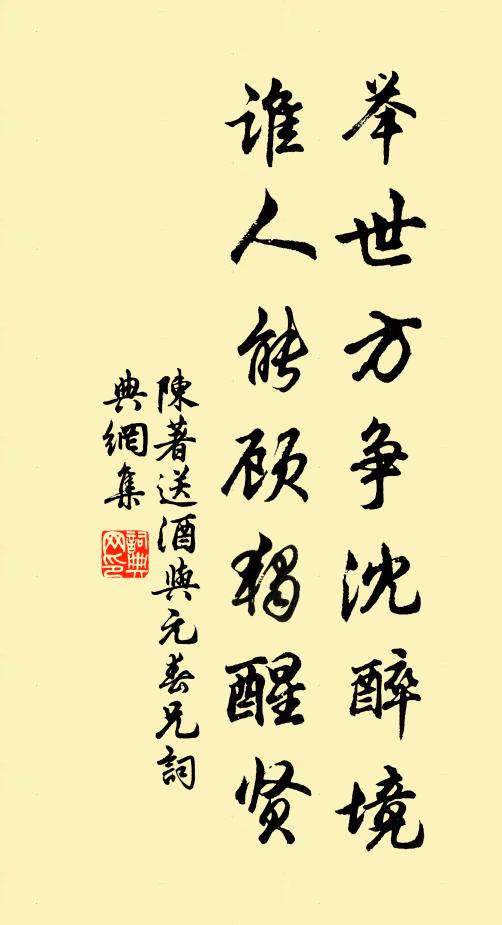 举世方争沈醉境
谁人能顾独醒贤
陳著送酒與元春兄詞
典網集
詞典
网印